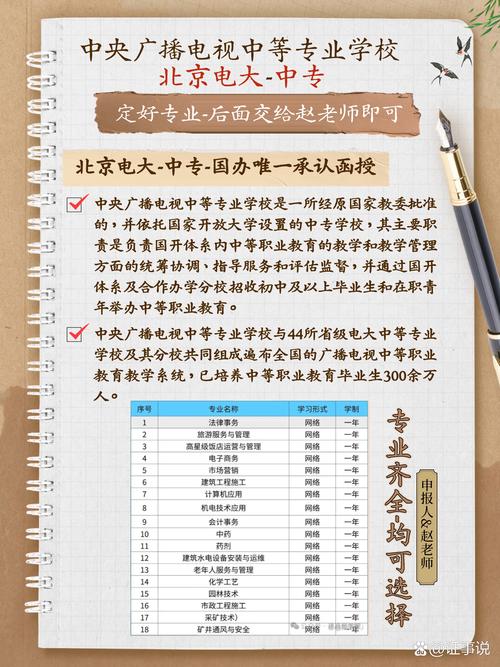 中央广播电视中等专业学校
北京电大-中专
定好专业-后面交给赵老师即可
北京电大-中专-国办唯一承认函授
中央广播电视中等专业学校是一所经原国家教委批准
的,并依托国家开放大学设置的中专学校,其主要职
责是负责国开体系内中等职业教育的教学和教学管理
方面的统筹协调、指导服务和评估监督,并通过国开
体系及合作办学分校招收初中及以上毕业生和在职青
年举办中等职业教育。
中央广播电视中等专业学校与44所省级电大中等专业
学校及其分校共同组成遍布全国的广播电视中等职业
教育教学系统,已培养中等职业教育毕业生300余万
人。
序号 专业名称 学习形式 学制
1 法律事务 网络 一年
2 旅游服务与管理 网络 一年
3 高星级饭店运营与管理 网络 一年
4 电子商务 网络 一年
5 市场营销 网络 一年
6 建筑工程施工 网络 一年
7 计算机应用 网络 一年
8 机电技术应用 网络 一年
9 会计事务 网络 一年
10 中药 网络 一年
11 药剂 网络 一年
12 建筑水电设备安装与运维 网络 一年
13 老年人服务与管理 网络 一年
14 化学工艺 网络 一年
15 园林技术 网络 一年
16 市政工程施工 网络 一年
17 采矿技术) 网络 一年
18 矿井通风与安全 网络 一年
专业齐全-均可选择
申报人&赵老师
@证事说